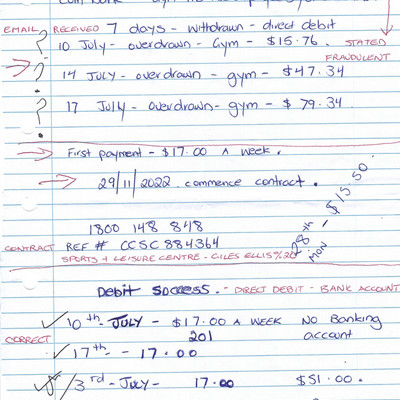 EMAIL RECEIVED 7 days - withdrawn - direct debit
? 10 July - overdrawn - Gym - $15.76. STATED
FRAUDULENT
? 14 July - overdrawn - gym - $47.34
? 17 July - overdrawn - gym - $79.34
→ First payment - $17.00 A week.
→ 29/11/2022 commence contract.
28th - $15.50
MON
1800 148 848
CONTRACT REF # CCSC884364
SPORTS + LEISURE CENTRE - GILES ELLIS
Debit Success. - DIRECT DEBIT - BANK ACCOUNT
✓ 10th - JULY - $17.00 A WEEK NO Banking
CORRECT 201 account
✓ 17th - - 17.00
3rd - July - 17.00 $51.00.